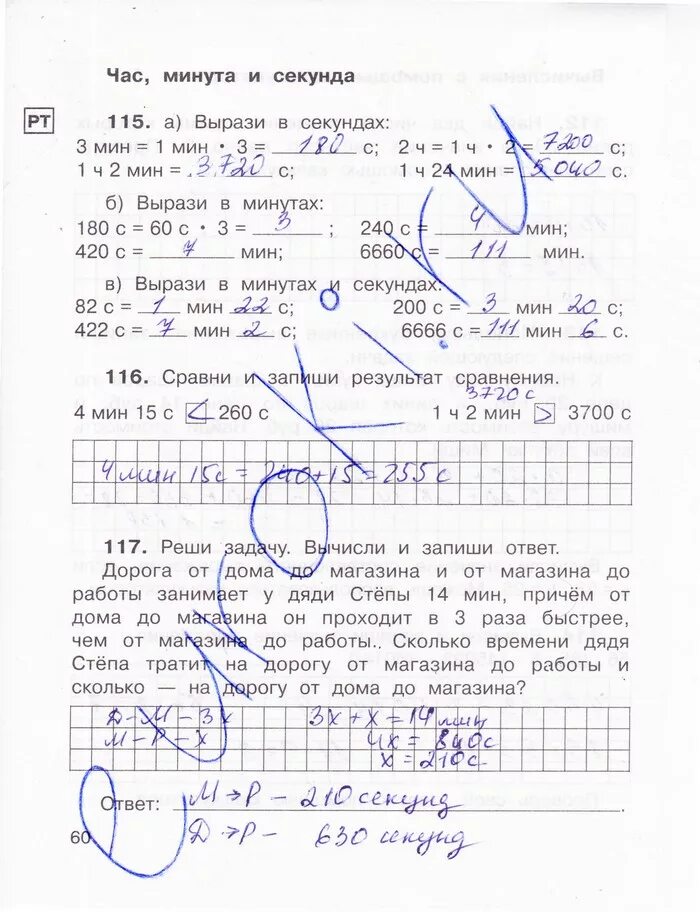 Час, минута и секунда
РТ
115. а) Вырази в секундах:
3 мин = 1 мин · 3 = 180 с; 2 ч = 1 ч · 2 = 7200 с;
1 ч 2 мин = 3720 с; 1 ч 24 мин = 5040 с.
б) Вырази в минутах:
180 с = 60 с · 3 = 3 ; 240 с = 4 мин;
420 с = 7 мин; 6660 с = 111 мин.
в) Вырази в минутах и секундах:
82 с = 1 мин 22 с; 200 с = 3 мин 20 с;
422 с = 7 мин 2 с; 6666 с = 111 мин 6 с.
116. Сравни и запиши результат сравнения.
3720 с
4 мин 15 с < 260 с 1 ч 2 мин > 3700 с
4 мин 15 с = 240 + 15 = 255 с
117. Реши задачу. Вычисли и запиши ответ.
Дорога от дома до магазина и от магазина до
работы занимает у дяди Стёпы 14 мин, причём от
дома до магазина он проходит в 3 раза быстрее,
чем от магазина до работы. Сколько времени дядя
Стёпа тратит на дорогу от магазина до работы и
сколько — на дорогу от дома до магазина?
Д – М – 3х 3х + х = 14 мин
М – Р – х 4х = 840 с
х = 210 с
Ответ: М → Р – 210 секунд.
60 Д → Р – 630 секунд